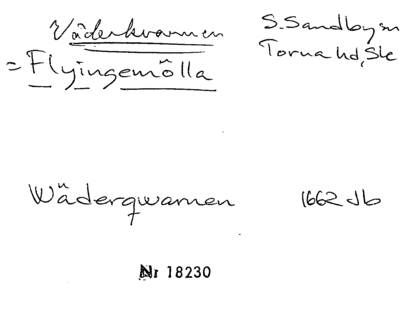 Väderkvarnen
S. Sandby sn
Torna hd, Ske
= Flyingemölla
Wäderqwarnen
1662 Jb
Nr 18230